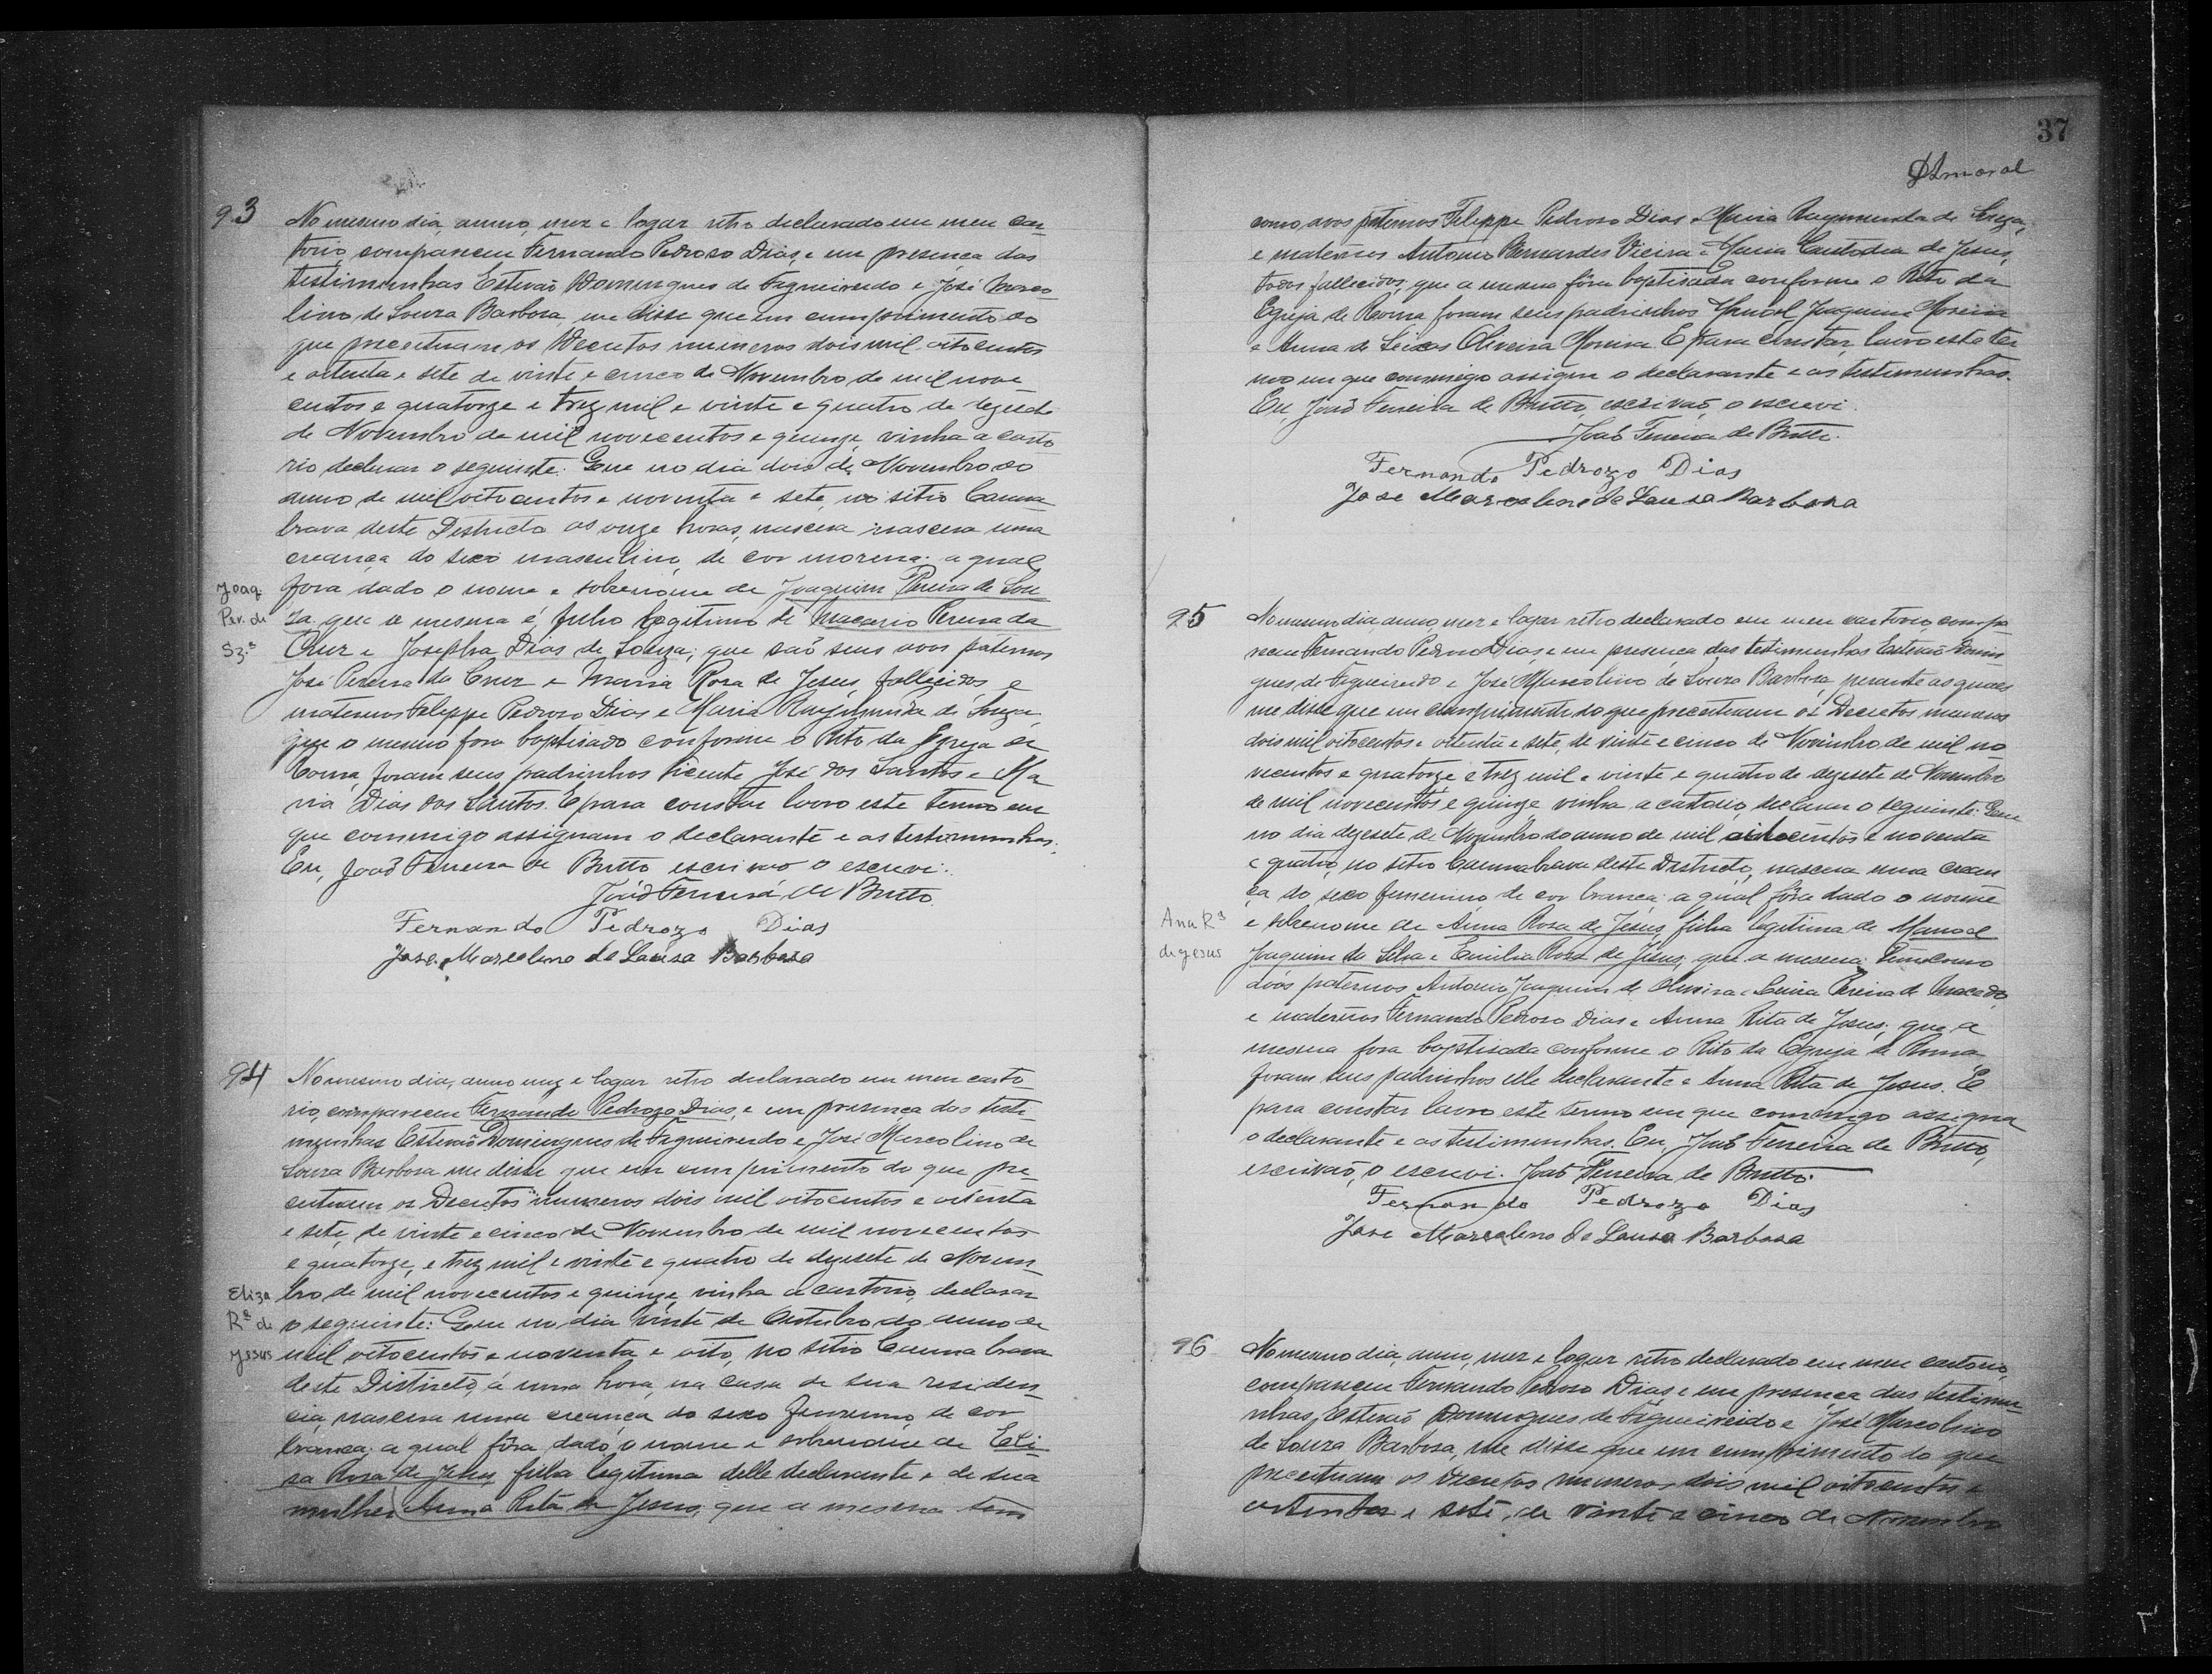 93
No mesmo dia, anno, mez e logar retro declarado em meu car
torio, compareceu Fernando Pedroso Dias, e em presença das
testimunhas Estevão Domingues de Figueiredo e José Marco
lino de Souza Barbosa, me disse que em cumprimento ao
que preceituam os Decretos numeros dois mil oitocentos
e oitenta e sete de vinte e cinco de Novembro de mil nove
centos e quatorze e trez mil e vinte e quatro de dezesete
de Novembro de mil novecentos e quinze, vinha a carto
rio declarar o seguinte: Que no dia dois de Novembro do
anno de mil oitocentos e noventa e sete, no sitio Canna
brava deste Districto as onze horas, nascera nascera uma
creança do sexo masculino, de cor morena; a qual
Joaq.
fora dado o nome e sobrenome de Joaquim Pereira de Sou
Per. de
za que o mesmo é filho legitimo de Macario Pereira da
Sz.ª
Cruz e Josepha Dias de Souza; que são seus avos paternos
José Pereira da Cruz e Maria Rosa de Jesus, fallecidos, e
maternos Felippe Pedroso Dias e Maria Raymunda de Souza,
que o mesmo fora baptisado conforme o Rito da Egreja de
Roma, foram seus padrinhos Vicente José dos Santos e Ma
ria Dias dos Santos. E para constar lavro este termo em
que commigo assignam o declarante e as testimunhas.
Eu, João Ferreira de Britto escrivão o escrevi.
João Ferreira de Britto.
Fernando Pedrozo Dias
Jose Marcolino de Sousa Barbosa
94
No mesmo dia, anno mez e logar retro declarado em meu carto
rio, compareceu Fernando Pedrozo Dias, e em presença das testi
munhas Estevão Domingues de Figueiredo e José Marcolino de
Souza Barbosa me disse que em cumprimento do que pre
ceituam os Decretos numeros dois mil oitocentos e oitenta
e sete, de vinte e cinco de Novembro de mil novecentos
e quatorze, e trez mil e vinte e quatro de dezesete de Novem
Eliza
bro de mil novecentos e quinze, vinha a cartorio, declarar
Rª de
o seguinte: Que no dia vinte de Outubro do anno de
Jesus
mil oitocentos e noventa e oito, no sitio Canna brava
deste Districto, á uma hora, na casa de sua residen
cia, nascera uma creança do sexo feminino, de cor
branca; a qual fôra dado, o nome e sobrenome de Eli
sa Rosa de Jesus, filha legitima delle declarante e de sua
mulher Anna Rita de Jesus, que a mesma tem
37
Amaral
como avos paternos Felippe Pedroso Dias e Maria Raymunda de Souza,
e maternos Antonio Bernardes Vieira e Maria Custodia de Jesus,
todos fallecidos, que a mesma fôra baptisada conforme o Rito da
Egreja de Roma foram seus padrinhos Manoel Joaquim Moreira
e Anna de Seixas Oliveira Moreira. E para constar, lavro este ter
mo em que commigo assigna o declarante e as testimunhas.
Eu, João Ferreira de Britto, escrivão, o escrevi.
João Ferreira de Britto.
Fernando Pedrozo Dias
Jose Marcolino de Sousa Barbosa
95
No mesmo dia, anno, mez e logar retro declarado em meu cartorio compa
receu Fernando Pedroso Dias, e em presença das testimunhas Estevão Domin
gues de Figueiredo e José Marcolino de Souza Barbosa, perante as quaes
me disse que em cumprimento do que preceituam os Decretos numeros
dois mil oitocentos e oitenta e sete, de vinte e cinco de Novembro de mil no
vecentos e quatorze e trez mil e vinte e quatro de dezesete de Novembro
de mil novecentos e quinze vinha a cartorio, declarar o seguinte: Que
no dia dezesete de Novembro do anno de mil oitocentos e noventa
e quatro, no sitio Cannabrava deste Districto, nascera uma crean
ça do sexo femenino de cor branca; a qual fôra dado o nome
Ana Rª
e sobrenome de Anna Rosa de Jesus, filha legitima de Manoel
de Jesus
Joaquim da Silva e Emilia Rosa de Jesus, que a mesma tem como
avós paternos Antonio Joaquim de Oliveira e Pereira de Macedo
e maternos Fernando Pedroso Dias e Anna Rita de Jesus; que a
mesma fora baptisada conforme o Rito da Egreja de Roma,
foram seus padrinhos elle declarante e Anna Rita de Jesus. E
para constar lavro este termo em que commigo assigna
o declarante e as testimunhas. Eu, João Ferreira de Britto,
escrivão, o escrevi. João Ferreira de Britto.
Fernando Pedrozo Dias
Jose Marcolino de Sousa Barbosa
96
No mesmo dia, anno, mez e logar retro declarado em meu cartorio,
compareceu Fernando Pedroso Dias e em presença das testimu
nhas, Estevão Domingues de Figueiredo e José Marcolino
de Souza Barbosa, me disse que em cumprimento do que
preceituam os Decretos numeros dois mil oitocentos e
oitenta e sete, de vinte e cinco de Novembro